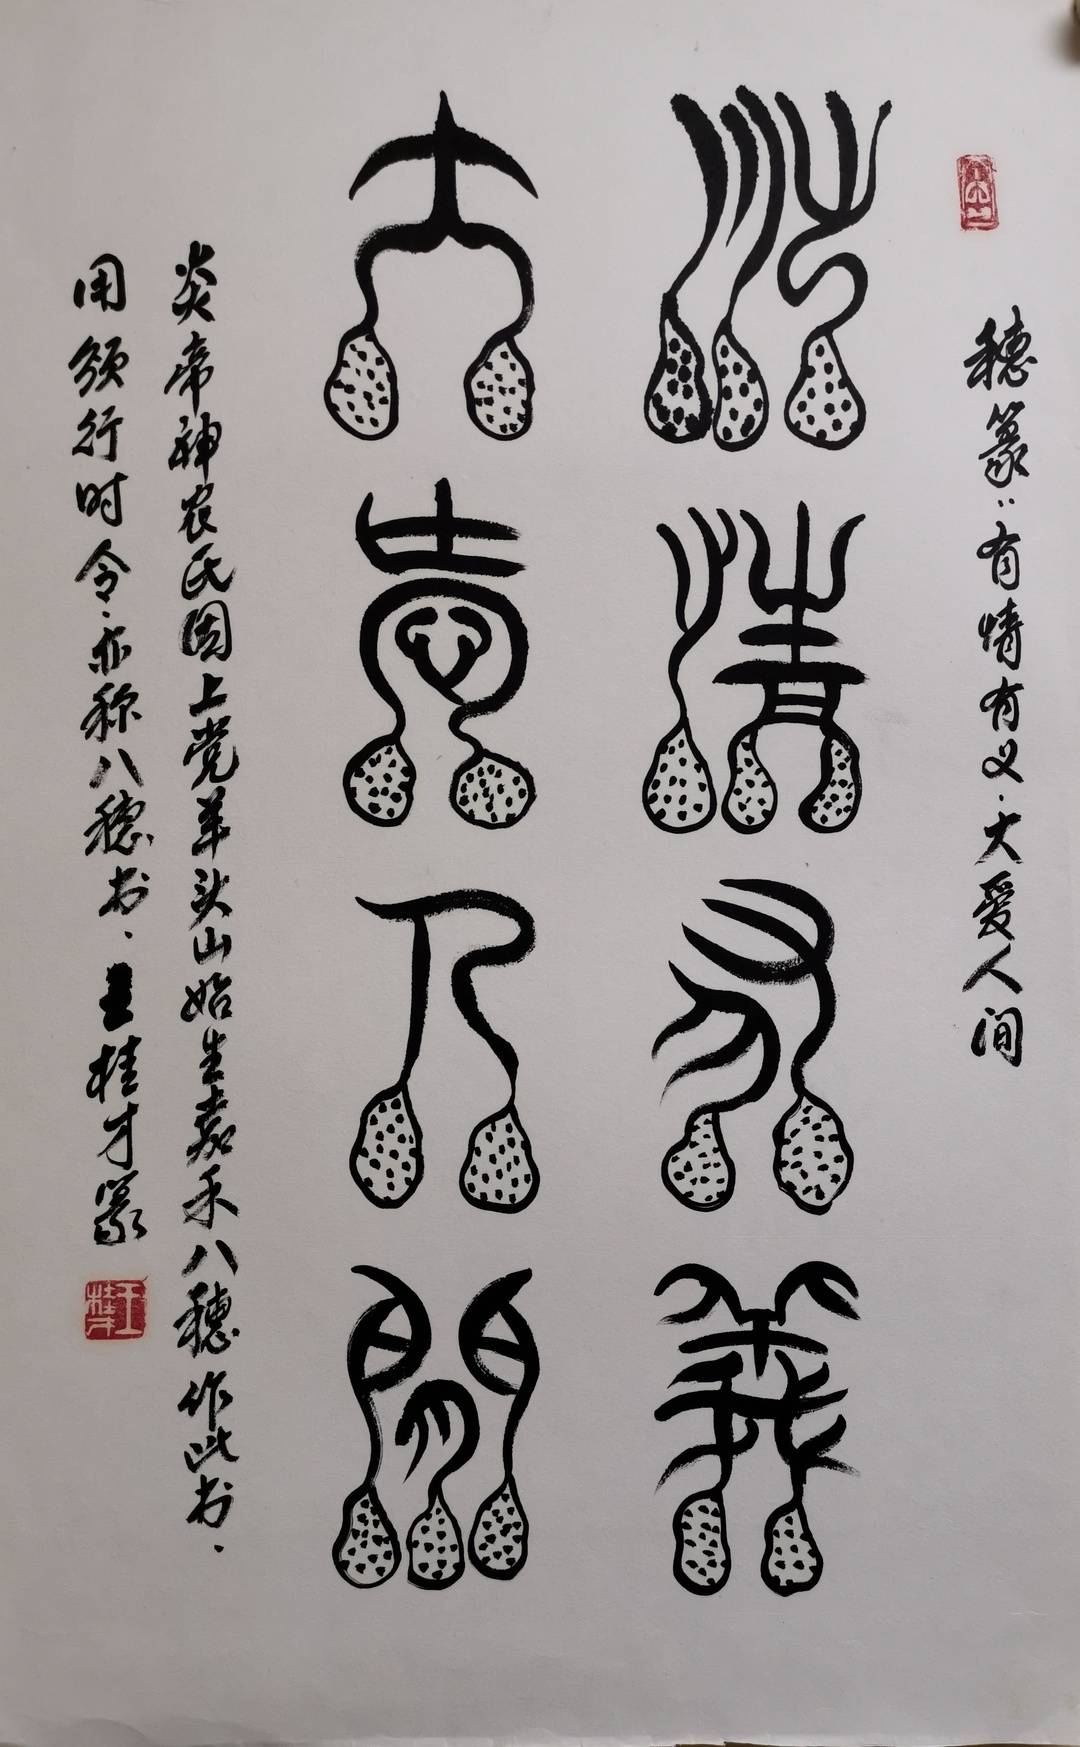 穗篆:有情有义.大爱人间
有情有義
大爱人間
炎帝神农氏因上党羊头山始生嘉禾八穗作此书.
用颁行时令.亦称八穗书.王桂才篆
王桂才